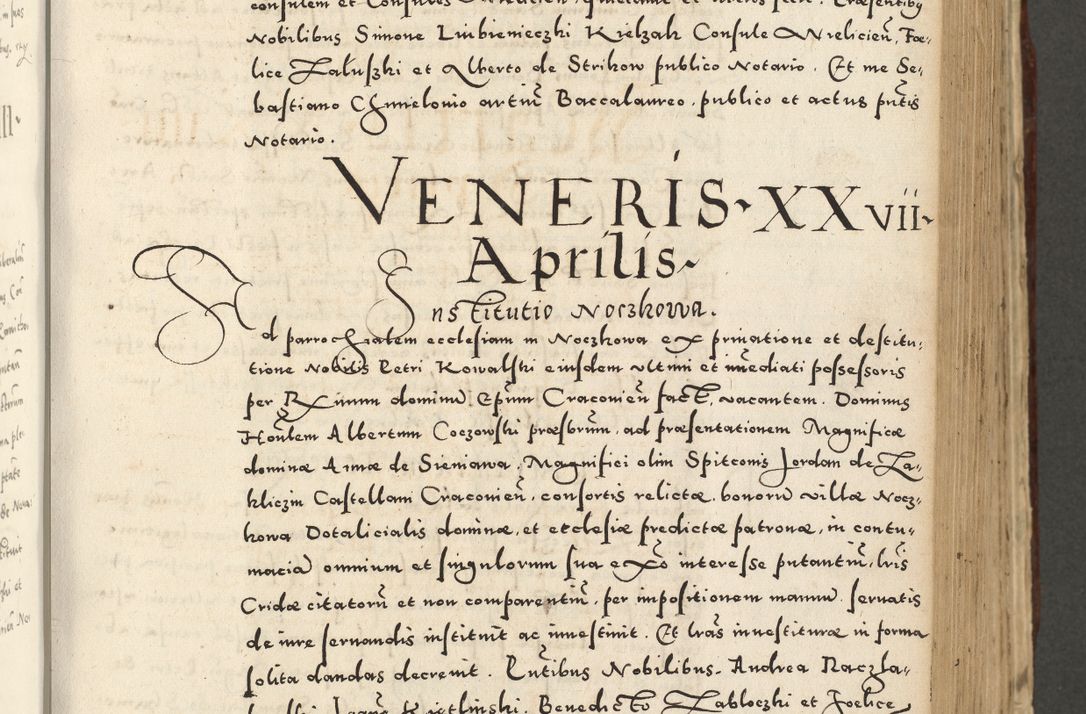 Nobilibus Simone Linbienieczki Kielzak Consule Wielicień, Foe-
lice Załuszki et Alberto de Strikow publico Notario. Et me Se-
bastiano Chmielonio artiū Baccalaureo, publico et actus pn̄tis
Notario.
VENERIS XXvii
Aprilis
Institutio Noczkowa.
Ad parrochialem ecclesiam in Noczkowa ex privatione et destitu-
tione Nobilis Petri Kowalski eiusdem ultimi et im̄ediati possessoris
per Rx̄mum dominū Ep̄um Craconień fact, vacantem. Dominus
Hon̄lem Albertum Coczowski præsb̄rum, ad præsentationem Magnificæ
dominæ Annæ de Sieniawa, Magnifici olim Spitconis Jordan de Za-
kliczin Castellani Craconień, consortis relictæ, bonorū villæ Nocz-
kowa Dotalicialis dominæ, et ecclesiæ predictæ patronæ, in contu-
maciā omnium et singulorum sua ex͠o interesse putantiū, lr̄is
Cridæ citatorū et non comparentiū, per impositionem manuū servatis
de iure servandis instituit ac investivit. Et lr̄as investituræ in forma
solita dandas decrevit. Pn̄tibus Nobilibus. Andrea Raczla-
Benedicto Zabloczki et Foelice